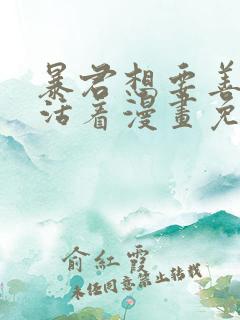 暴君想要善
活看漫畫免
俞紅霞
未经同意禁止转载